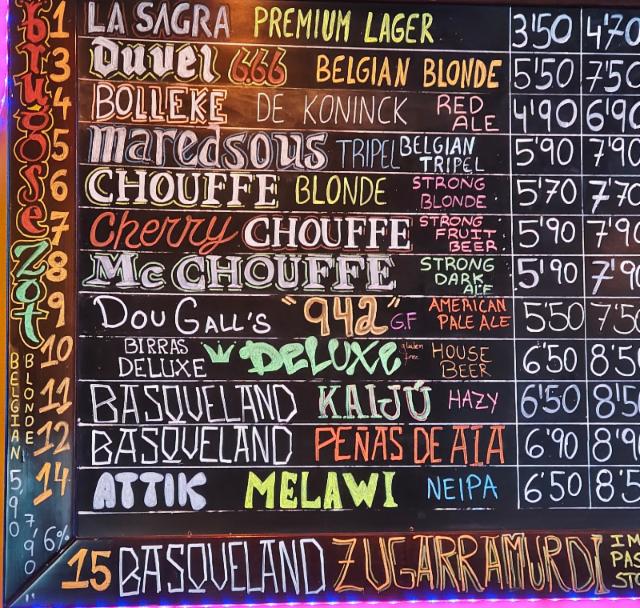 brugse
zot
BELGIAN
BLONDE
5,90
7,90
6%
1 LA SAGRA PREMIUM LAGER 3'50 4'70
3 Duvel 666 BELGIAN BLONDE 5'50 7'50
4 BOLLEKE DE KONINCK RED ALE 4'90 6'90
5 maredsous TRIPEL BELGIAN TRIPEL 5'90 7'90
6 CHOUFFE BLONDE STRONG BLONDE 5'70 7'70
7 Cherry CHOUFFE STRONG FRUIT BEER 5'90 7'90
8 Mc CHOUFFE STRONG DARK ALE 5'90 7'90
9 DOUGALL'S "942" G.F AMERICAN PALE ALE 5'50 7'50
10 BIRRAS DELUXE DELUXE gluten free HOUSE BEER 6'50 8'5
11 BASQUELAND KAIJÚ HAZY 6'50 8'5
12 BASQUELAND PEÑAS DE AIA 6'90 8'9
14 ATTIK MELAWI NEIPA 6'50 8'5
15 BASQUELAND ZUGARRAMURDI